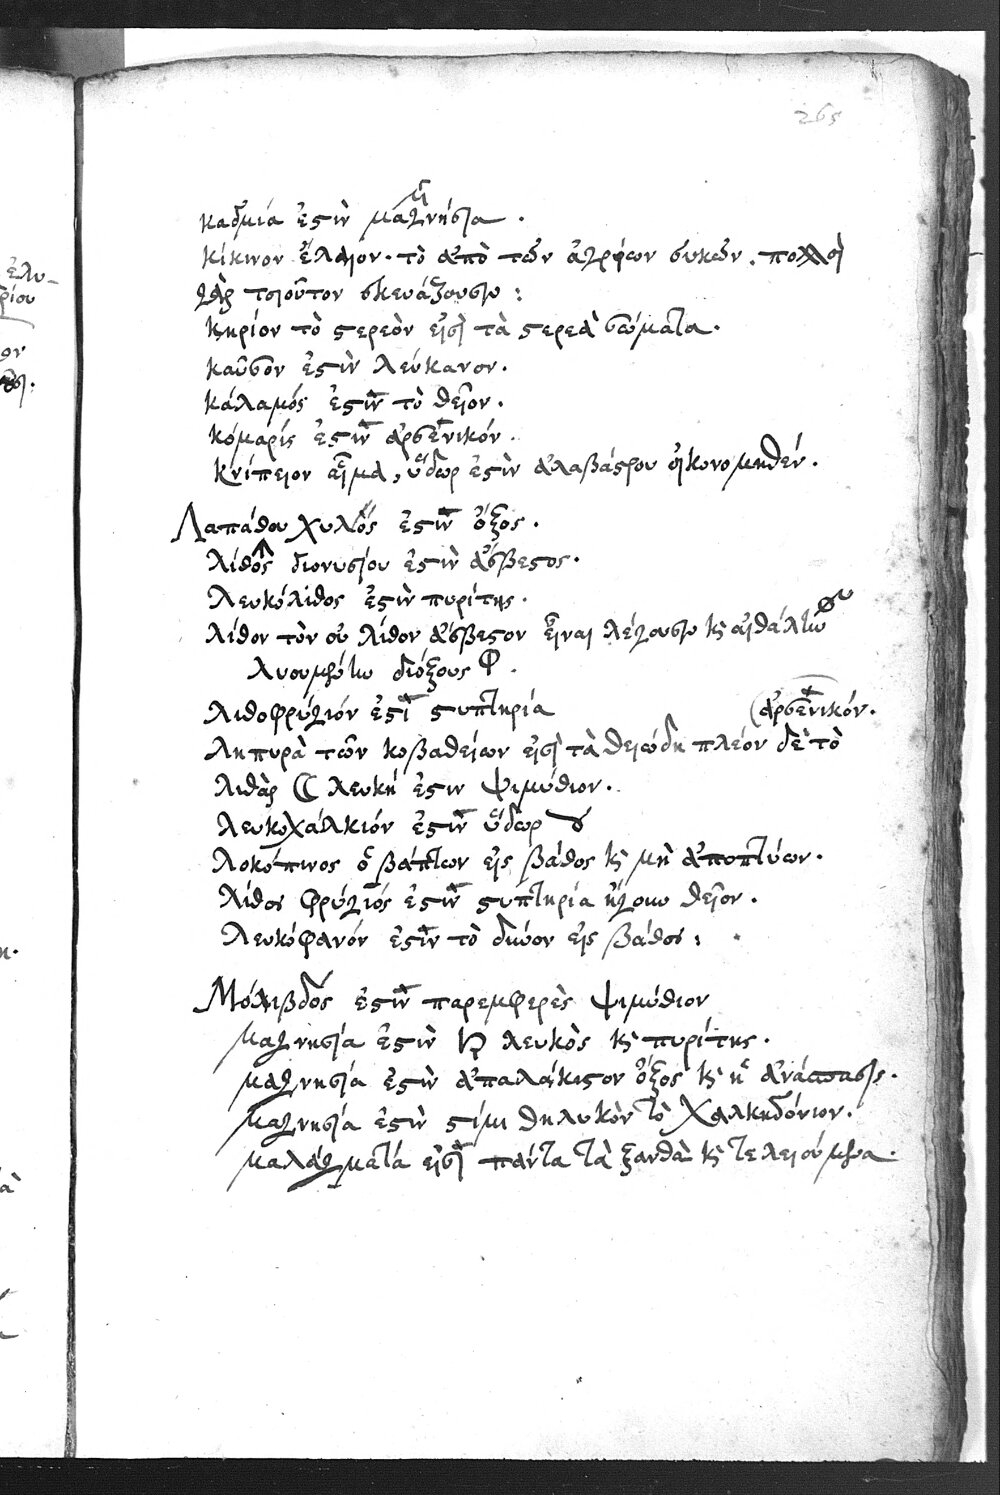 265
καδμία ἐστὶν μαγνησία.
κίκινον ἔλαιον. τὸ ἀπὸ τῶν ἀγρίων συκῶν. πολλοὶ
γὰρ τοιοῦτον σκευάζουσιν:
κηρίον τὸ στερεὸν εἰσὶ τὰ στερεὰ σώματα.
καῦσον ἐστὶν λεύκανον.
κάλαμός ἐστιν τὸ θεῖον.
κόμαρίς ἐστιν ἀρσένικόν.
κνίπειον αἷμα, ὕδωρ ἐστὶν ἀλαβάστρου οἰκονομηθέν.
Λαπάθου χυλός ἐστιν ὄξος.
λίθος διονυσίου ἐστὶν ἄσβεστος.
λευκόλιθος ἐστὶν πυρίτης.
λίθον τὸν οὐ λίθον ἄσβεστον εἶναι λέγουσιν κ αἰθάλην
διόξους
λιθοφρύγιόν ἐστι στυπτηρία
ἀρσένικόν.
ληπυρὰ τῶν κοβαθείων εἰσὶ τὰ θειώδη πλέον δὲ τὸ
λιθαρ λευκή ἐστιν ψιμύθιον.
λευκοχάλκιόν ἐστιν ὕδωρ
λοκόπινος ὁ βάπτων εἰς βάθος κ μὴ ἀποπτύων.
λίθος φρύγιός ἐστιν στυπτηρία ἤγουν θεῖον.
λευκόφανόν ἐστιν τὸ δῦνον εἰς βάθος:
Μόλιβδός ἐστιν παρεμφερὲς ψιμύθιον
μαγνησία ἐστὶν λευκὸς κ πυρίτης.
μαγνησία ἐστὶν ἀπαλάκιστον ὄξος κ ἡ ἀνάσπασις.
μαγνησία ἐστὶν στίμι θηλυκὸν τὸ χαλκηδόνιον.
μαλάγματά εἰσὶ πάντα τὰ ξανθὰ κ τελειούμενα.